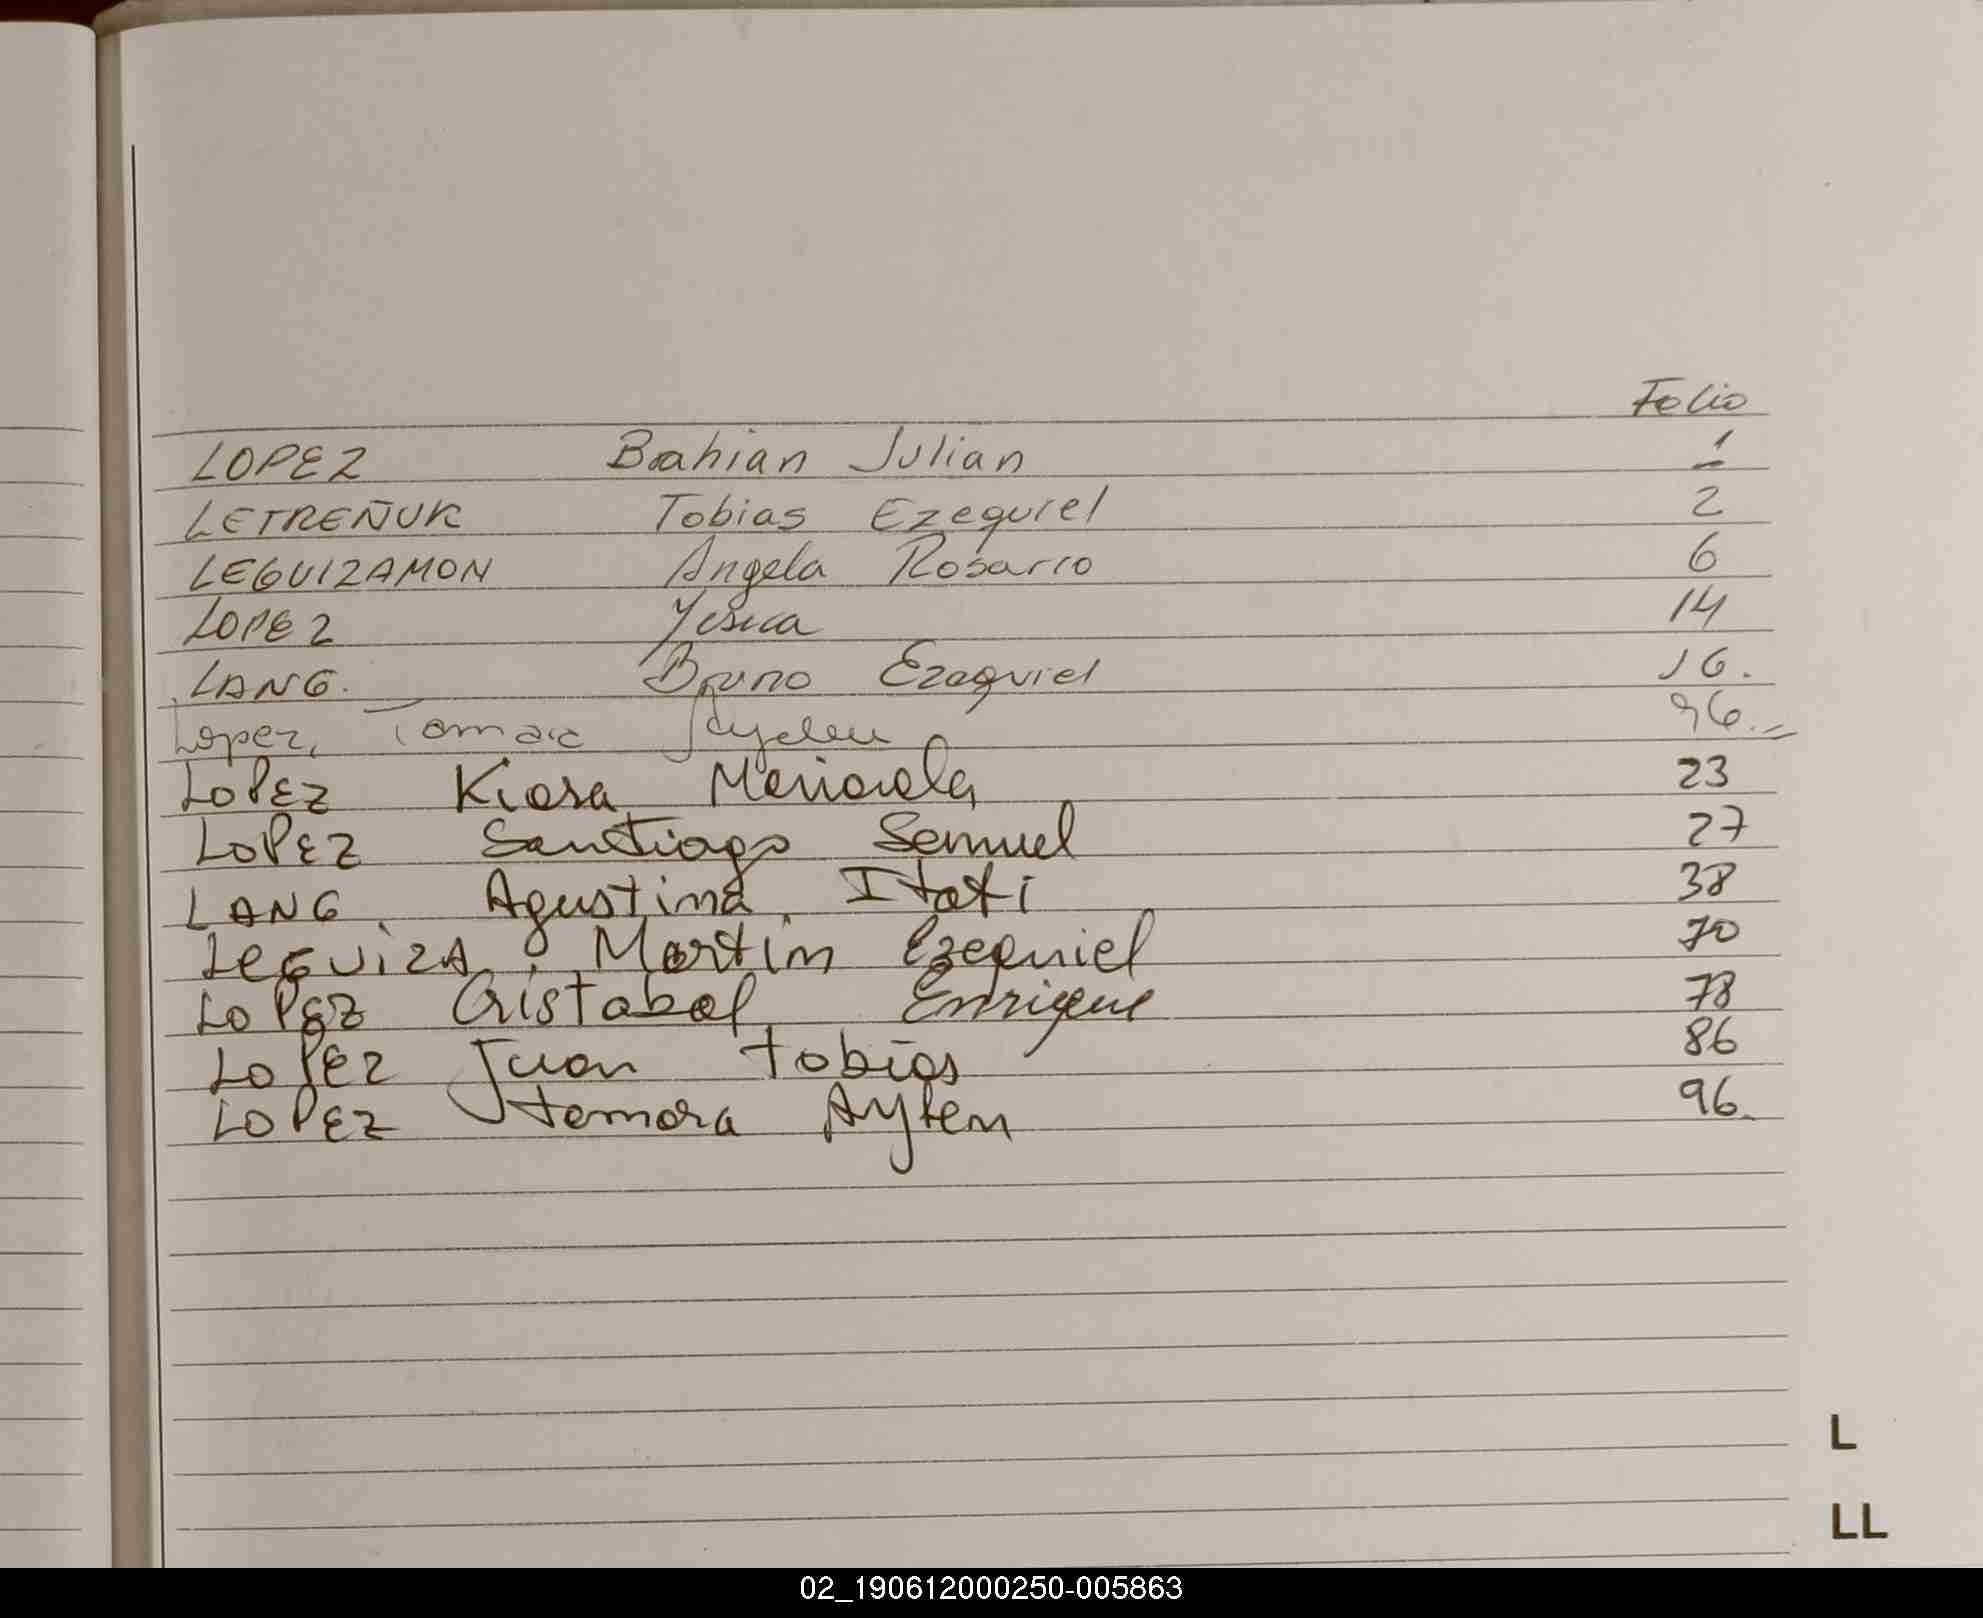 Folio
LOPEZ Brahian Julian 1
LETREÑUK Tobias Ezequiel 2
LEGUIZAMON Angela Rosario 6
LOPEZ Yesica 14
LANG. Bruno Ezequiel 16.
Lopez, Ayelen 96.
LOPEZ Kiara 23
LOPEZ Santiago Samuel 27
LANG. Agustina, Itati 38
LEGUIZA, Martin Ezequiel 70
LOPEZ Cristobal Enrique 78
LOPEZ Juan tobias 86
LOPEZ tamara Aylen 96.
L
LL
02_190612000250-005863